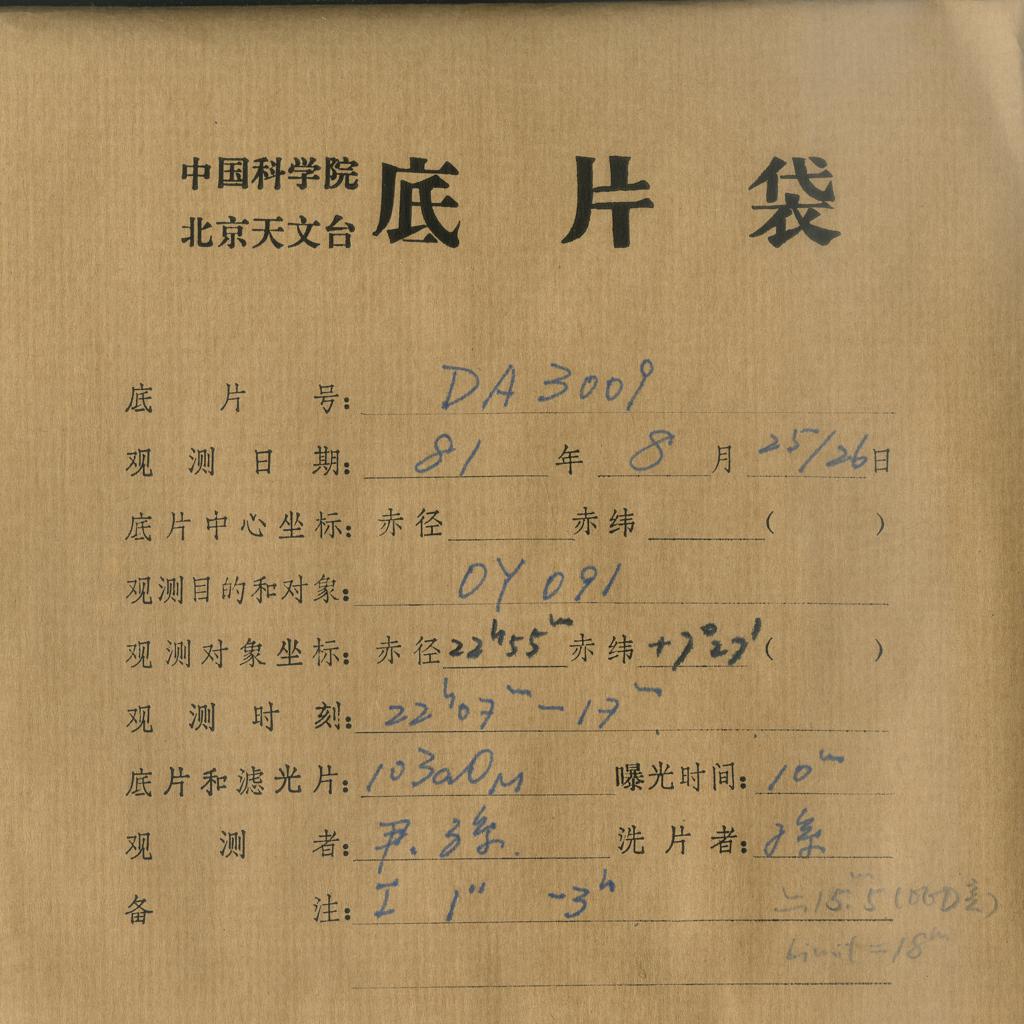 中国科学院
北京天文台
底片袋
底片号: DA 3009
观测日期: 81 年 8 月 25/26 日
底片中心坐标: 赤径 赤纬 ( )
观测目的和对象: OY 091
观测对象坐标: 赤径 22ʰ55ᵐ 赤纬 +7°27′ ( )
观测时刻: 22ʰ07ᵐ-17ᵐ
底片和滤光片: 103aO 曝光时间: 10ᵐ
观测者: 尹. 孙. 洗片者: 孙
备注: I 1" -3ʰ
15.ᵐ5
limit = 18ᵐ